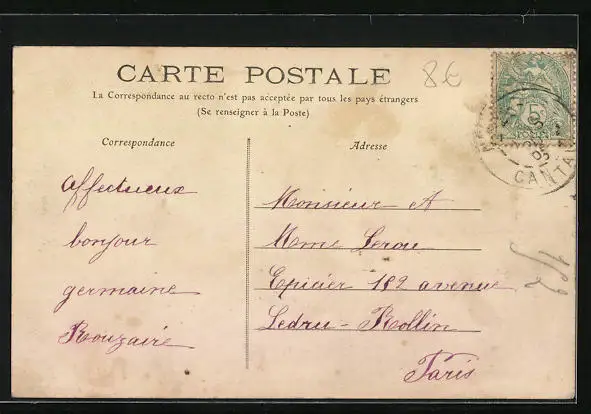 CARTE POSTALE
La Correspondance au recto n'est pas acceptée par tous les pays étrangers
(Se renseigner à la Poste)
8€
Correspondance
Adresse
affectueux
bonjour
germaine
Rouzaire
Monsieur et
Mme Lerou
Epicier 182 avenue
Ledru-Rollin
Paris
5
POSTES
CANTAL